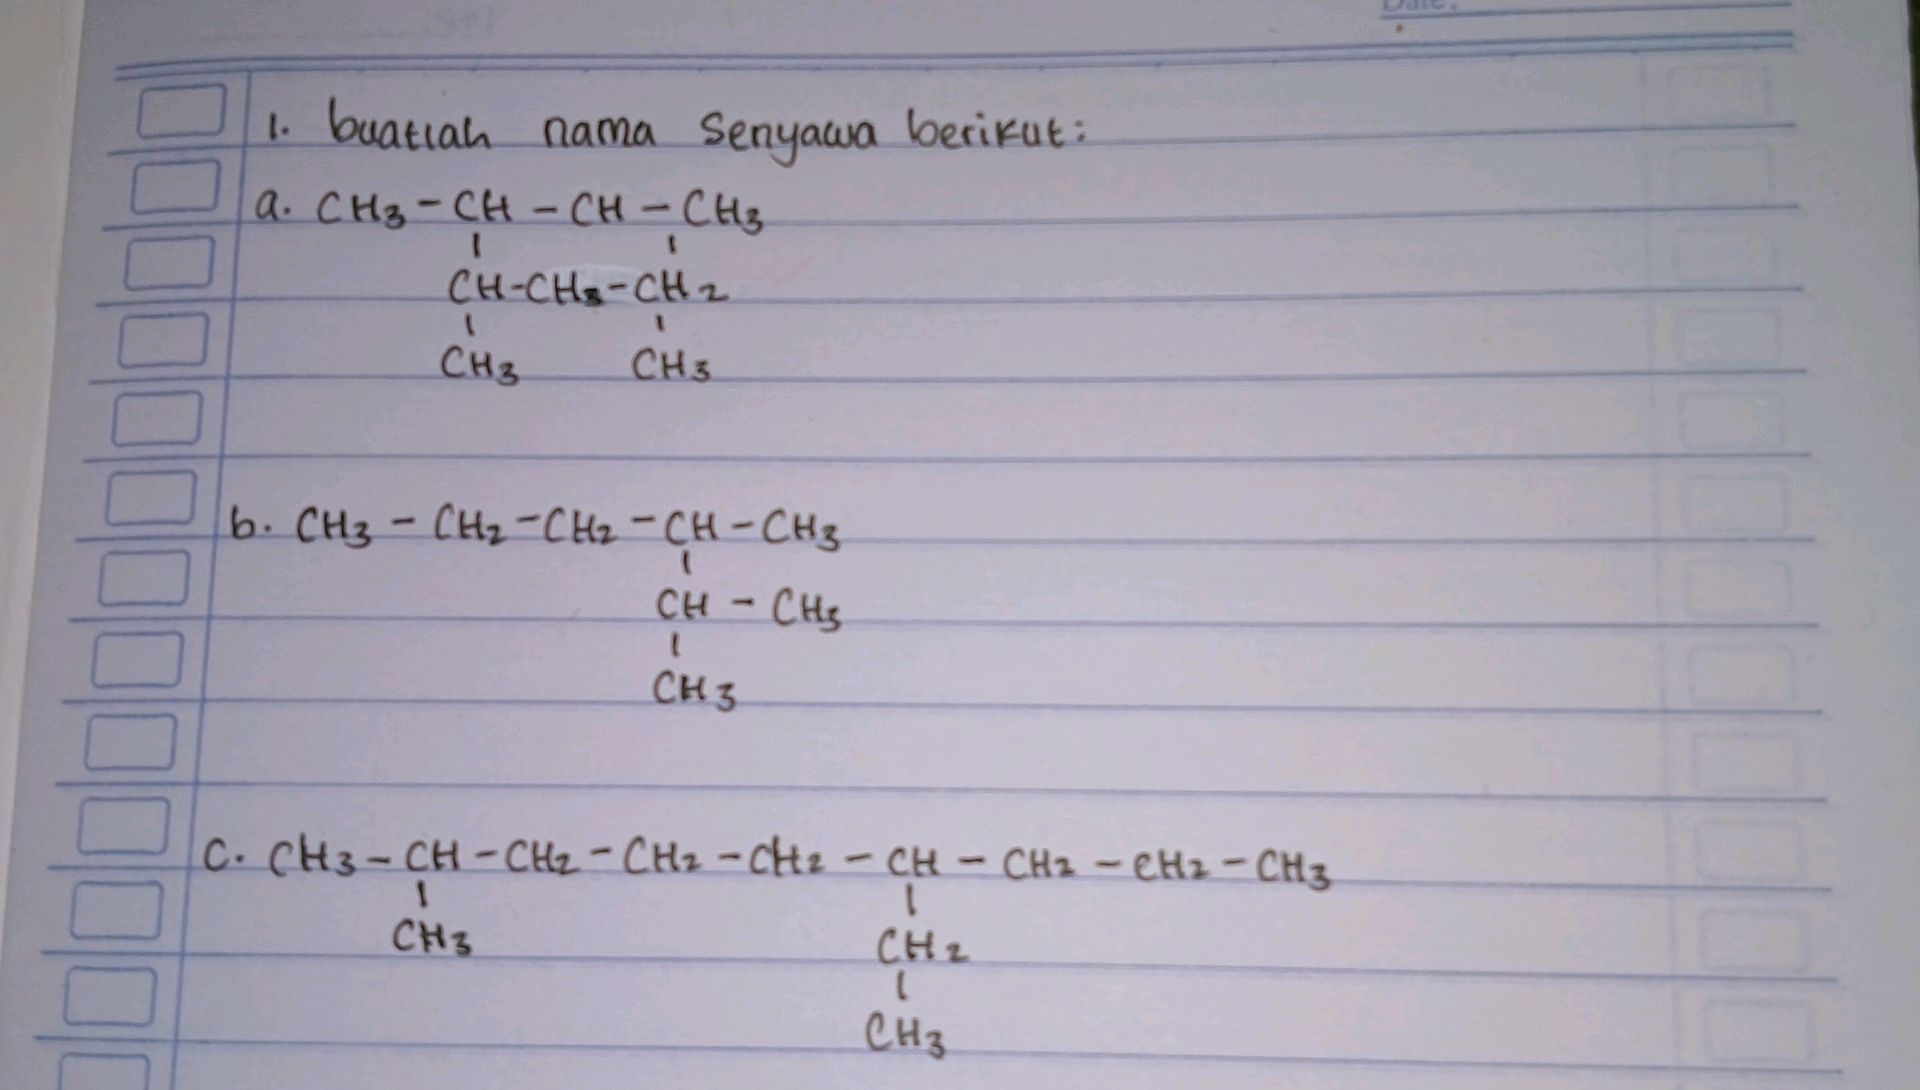 Date:
1. buatlah nama Senyawa berikut:
a. CH3 - CH - CH - CH3
CH-CH3-CH2
CH3 CH3
b. CH3 - CH2 - CH2 - CH - CH3
CH - CH3
CH3
c. CH3 - CH - CH2 - CH2 - CH2 - CH - CH2 - CH2 - CH3
CH3 CH2
CH3